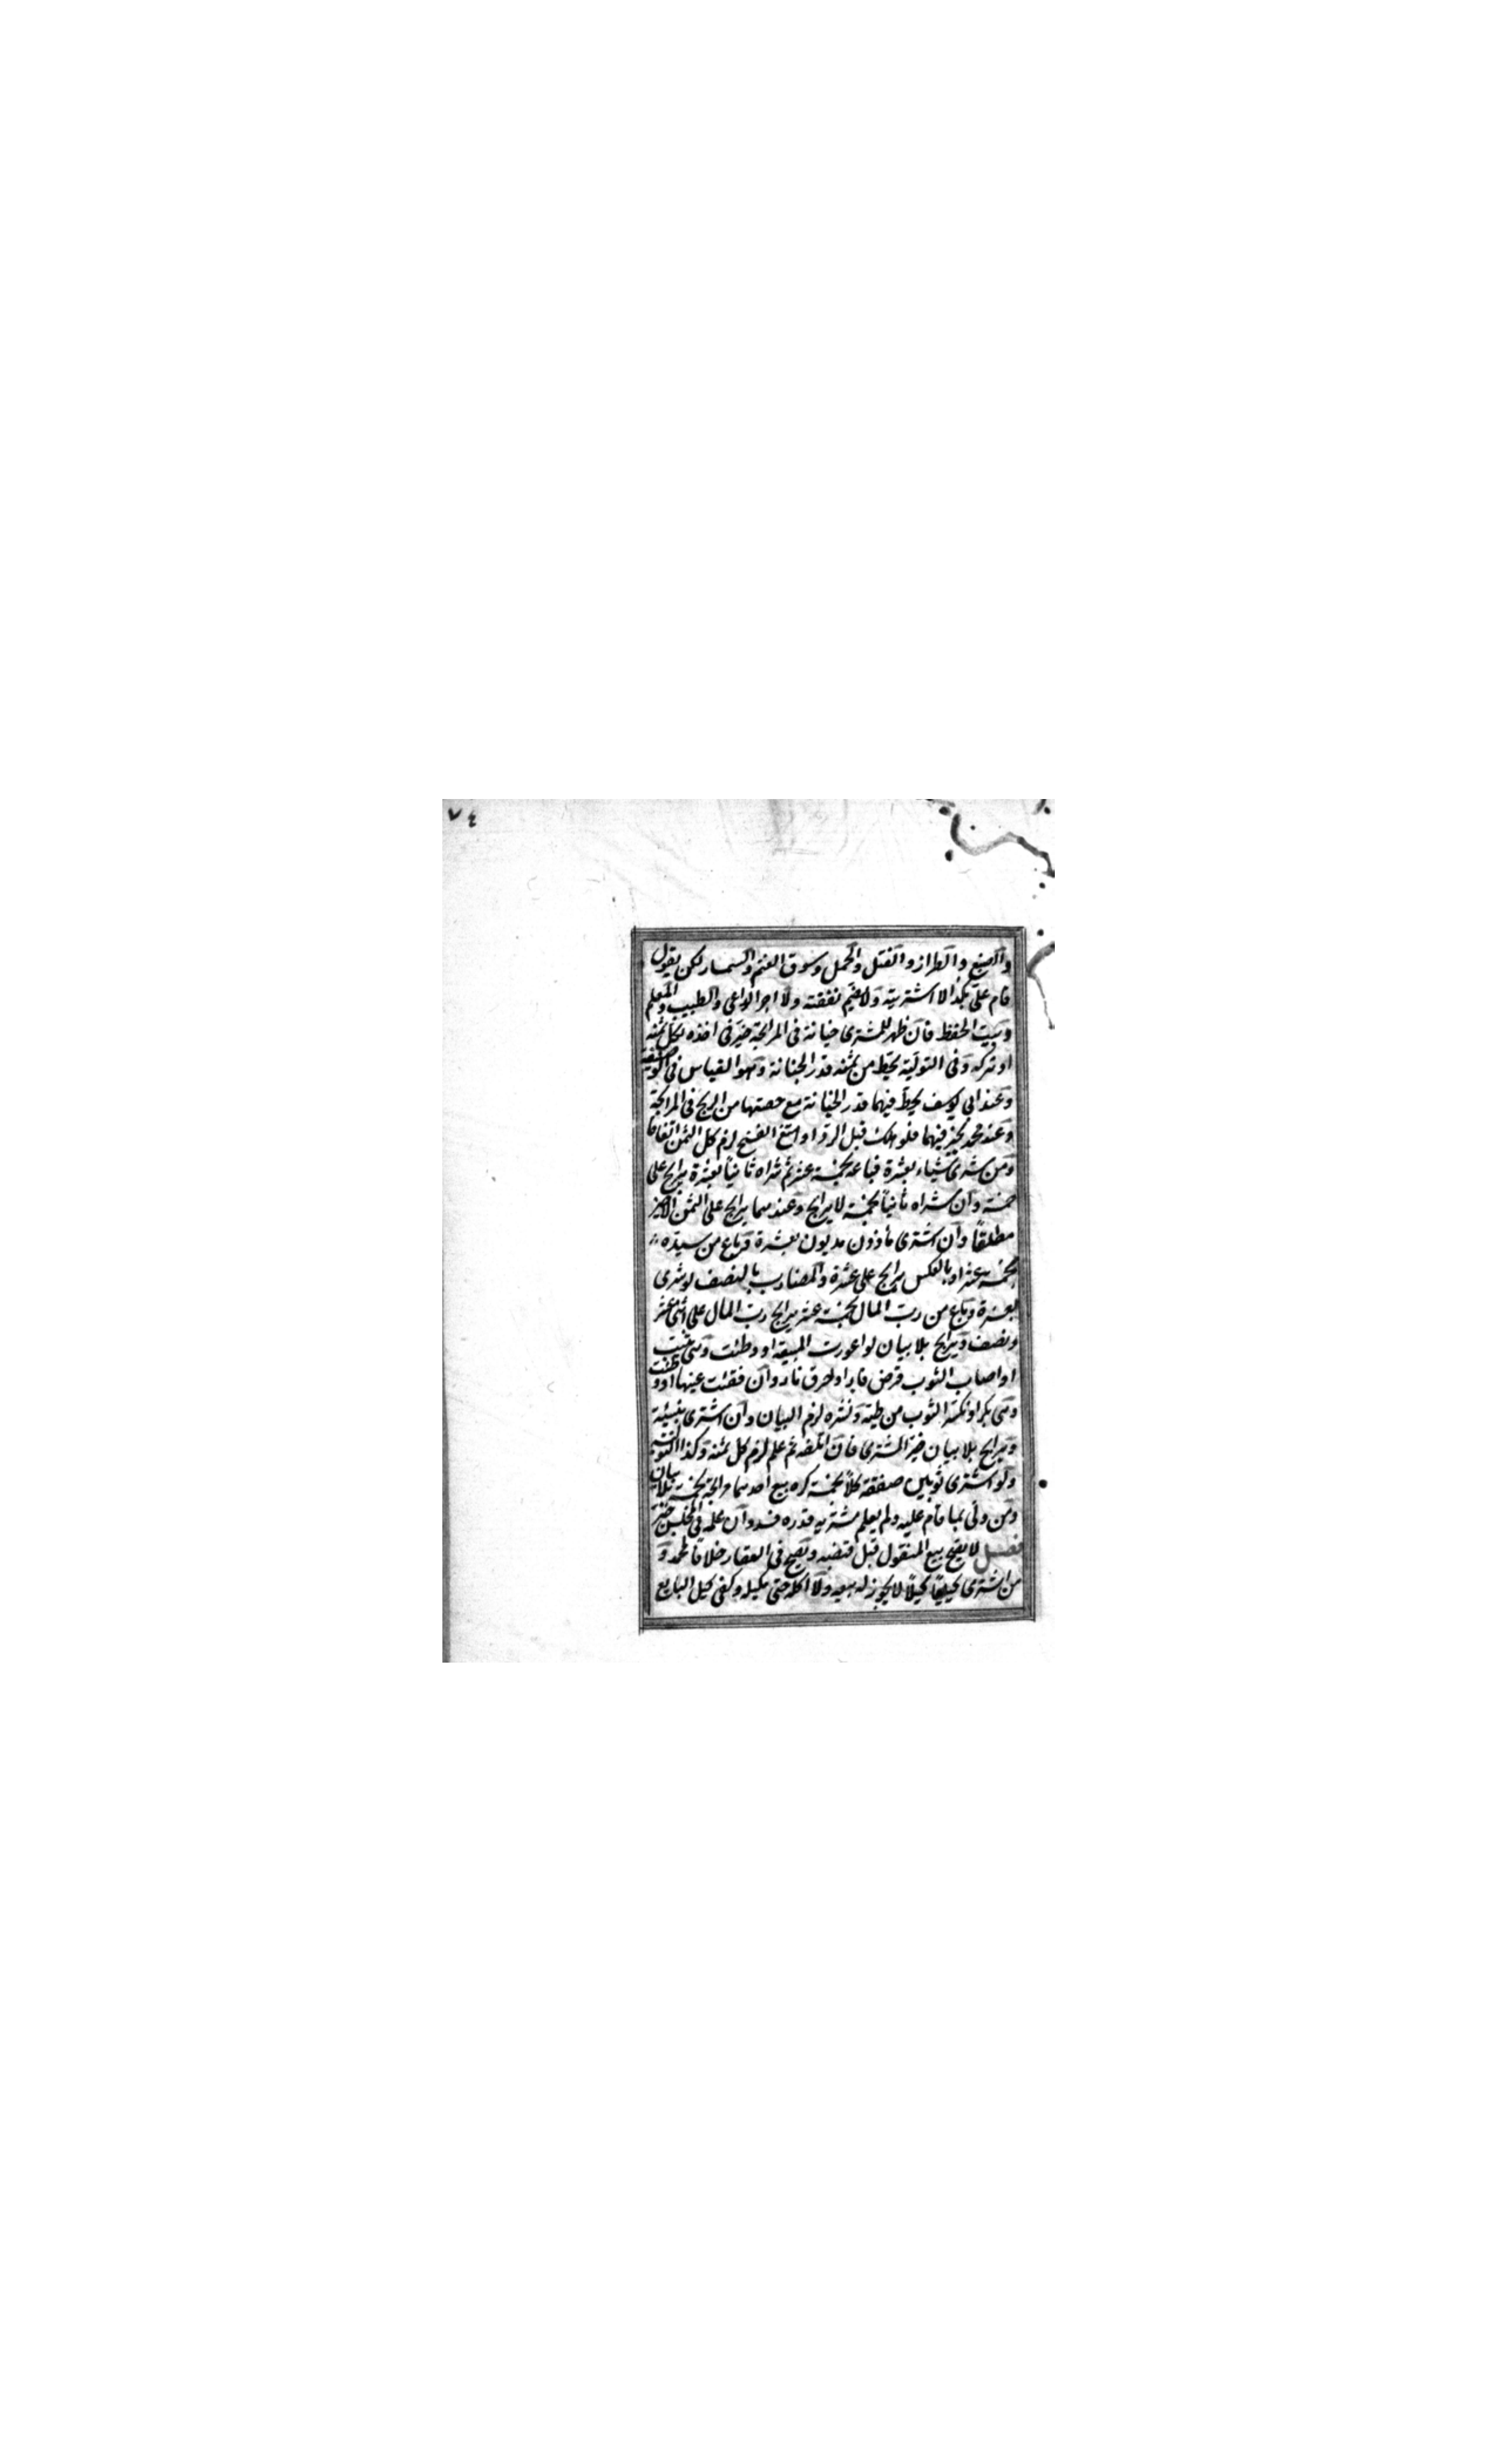 ٧٤
والصبغ والطراز والفتل والحمل وسوق الغنم والسمسار لكن يقول
قام علىّ بكذا لا اشتريته ولا يضم نفقته ولا اجر الراعى والطبيب والمعلم
وبيت الحفظ فان ظهر للمشترى خيانة فى المرابحة خيّر فى اخذه بكل ثمنه
او تركه وفى التولية يحطّ من ثمنه قدر الخيانة وهو القياس فى الوضيعة
وعند ابى يوسف يحطّ فيهما قدر الخيانة مع حصتها من الربح فى المرابحة
وعند محمد يخير فيهما فلو هلك قبل الردّ او امتنع الفسخ لزم كل الثمن اتفاقا
ومن شرى شيئاء بعشرة فباعه بخمسة عشر ثم شراه ثانياً بعشرة يرابح على
خمسة وان شراه ثانياً بخمسة لا يرابح وعندهما يرابح على الثمن الاخير
مطلقاً وان اشترى مأذون مديون بعشرة وباع من سيده
بخمسة عشر او بالعكس يرابح على عشرة والمضارب بالنصف لو شرى
بعشرة وباع من رب المال بخمسة عشر يرابح رب المال على اثنى عشر
ونصف ويرابح بلا بيان لو اعورت المبيعة او وطئت وهى ثيب
او اصاب الثوب قرض فار او احرق نار وان فقئت عينها او وطئت
وهى بكر او تكسر الثوب من طيه ونشره لزم البيان وان اشترى بنسيئة
ويرابح بلا بيان خيّر المشترى فان اتلفه ثم علم لزم كل ثمنه وكذا التولية
ولو اشترى ثوبين صفقة كلاً بخمسة كره بيع احدهما مرابحة بخمسة بلا بيان
ومن ولّى بما قام عليه ولم يعلم مشتريه قدره فسد وان علمه فى المجلس خيّر
فصل لا يصح بيع المنقول قبل قبضه ويصح فى العقار خلافا لمحمد و
من اشترى كيلياً كيلاً لا يجوز له بيعه ولا اكله حتى يكيله وكفى كيل البايع